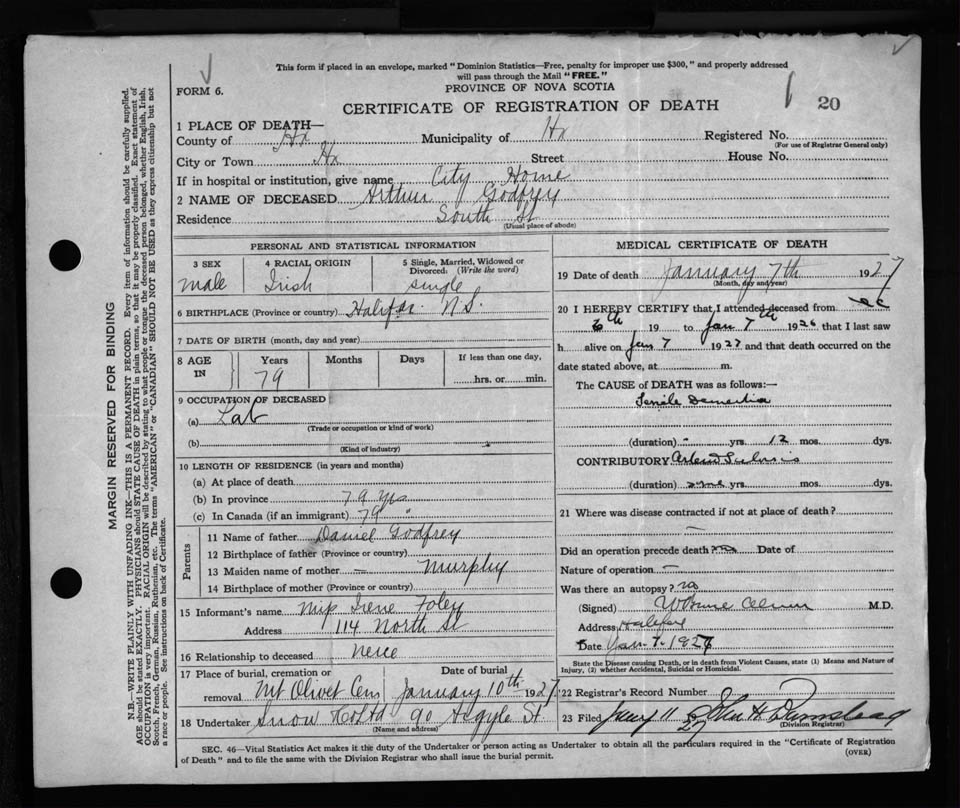 This form if placed in an envelope, marked "Dominion Statistics—Free, penalty for improper use $300," and properly addressed
will pass through the Mail "FREE."
FORM 6.
PROVINCE OF NOVA SCOTIA
CERTIFICATE OF REGISTRATION OF DEATH
20
1 PLACE OF DEATH—
County of Hx Municipality of Hx Registered No.
(For use of Registrar General only)
City or Town Hx Street House No.
If in hospital or institution, give name City Home
2 NAME OF DECEASED Arthur Godfrey
Residence South St
(Usual place of abode)
PERSONAL AND STATISTICAL INFORMATION
3 SEX 4 RACIAL ORIGIN 5 Single, Married, Widowed or Divorced: (Write the word)
male Irish single
6 BIRTHPLACE (Province or country) Halifax N.S.
7 DATE OF BIRTH (month, day and year)
8 AGE IN Years Months Days If less than one day,
79 hrs. or min.
9 OCCUPATION OF DECEASED
(a) Lab
(Trade or occupation or kind of work)
(b)
(Kind of industry)
10 LENGTH OF RESIDENCE (in years and months)
(a) At place of death
(b) In province 79 yrs
(c) In Canada (if an immigrant) 79 "
Parents
11 Name of father Daniel Godfrey
12 Birthplace of father (Province or country)
13 Maiden name of mother — Murphy
14 Birthplace of mother (Province or country)
15 Informant's name Irene Foley
Address 114 North St
16 Relationship to deceased neice
17 Place of burial, cremation or removal Mt Olivet Cem Date of burial January 10th 1927
18 Undertaker Snow & Co Ltd 90 Argyle St
(Name and address)
MEDICAL CERTIFICATE OF DEATH
19 Date of death January 7th 1927
(Month, day and year)
20 I HEREBY CERTIFY that I attended deceased from
6th 19 to Jan 7th 1926 that I last saw
h alive on Jan 7 1927 and that death occurred on the
date stated above, at m.
The CAUSE of DEATH was as follows:—
Senile Dementia
(duration) yrs. 12 mos. dys.
CONTRIBUTORY
(duration) some yrs. mos. dys.
21 Where was disease contracted if not at place of death?
Did an operation precede death? no Date of
Nature of operation —
Was there an autopsy? no
(Signed) M.D.
Address Halifax
Date Jan 7. 1927
State the Disease causing Death, or in death from Violent Causes, state (1) Means and Nature of
Injury, (2) whether Accidental, Suicidal or Homicidal.
22 Registrar's Record Number
23 Filed Jany 11 27 John H Barnstead
(Division Registrar)
SEC. 46—Vital Statistics Act makes it the duty of the Undertaker or person acting as Undertaker to obtain all the particulars required in the "Certificate of Registration
of Death" and to file the same with the Division Registrar who shall issue the burial permit.
(OVER)
MARGIN RESERVED FOR BINDING
N.B.—WRITE PLAINLY WITH UNFADING INK—THIS IS A PERMANENT RECORD. Every item of information should be carefully supplied.
AGE should be stated EXACTLY. PHYSICIANS should STATE CAUSE OF DEATH in plain terms, so that it may be properly classified. Exact statement of
OCCUPATION is very important. RACIAL ORIGIN will be described by stating to what people or tongue the deceased person belonged, whether English, Irish,
Scotch, French, German, Russian, Ruthenian, etc. The terms "AMERICAN" or "CANADIAN" SHOULD NOT BE USED as they express citizenship but not
a race or people. See instructions on back of Certificate.